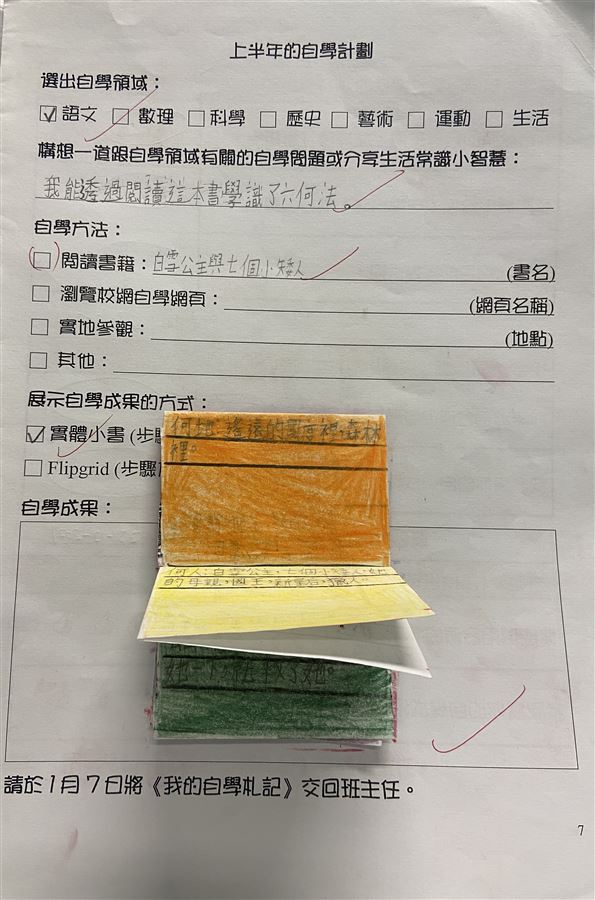 上半年的自學計劃
選出自學領域：
☑語文 □數理 □科學 □歷史 □藝術 □運動 □生活
構想一道跟自學領域有關的自學問題或分享生活常識小智慧：
我能透過閱讀這本書學識了六何法。
自學方法：
□ 閱讀書籍：白雪公主與七個小矮人 (書名)
□ 瀏覽校網自學網頁： (網頁名稱)
□ 實地參觀： (地點)
□ 其他：
展示自學成果的方式：
☑ 實體小書 (步驟
□ Flipgrid (步驟
自學成果：
何地：遙遠的國度裡,森林
裡。
何人：白雪公主,七個小矮人,她
的母親,國王,新皇后,獵人。
救了她。
請於1月7日將《我的自學札記》交回班主任。
7